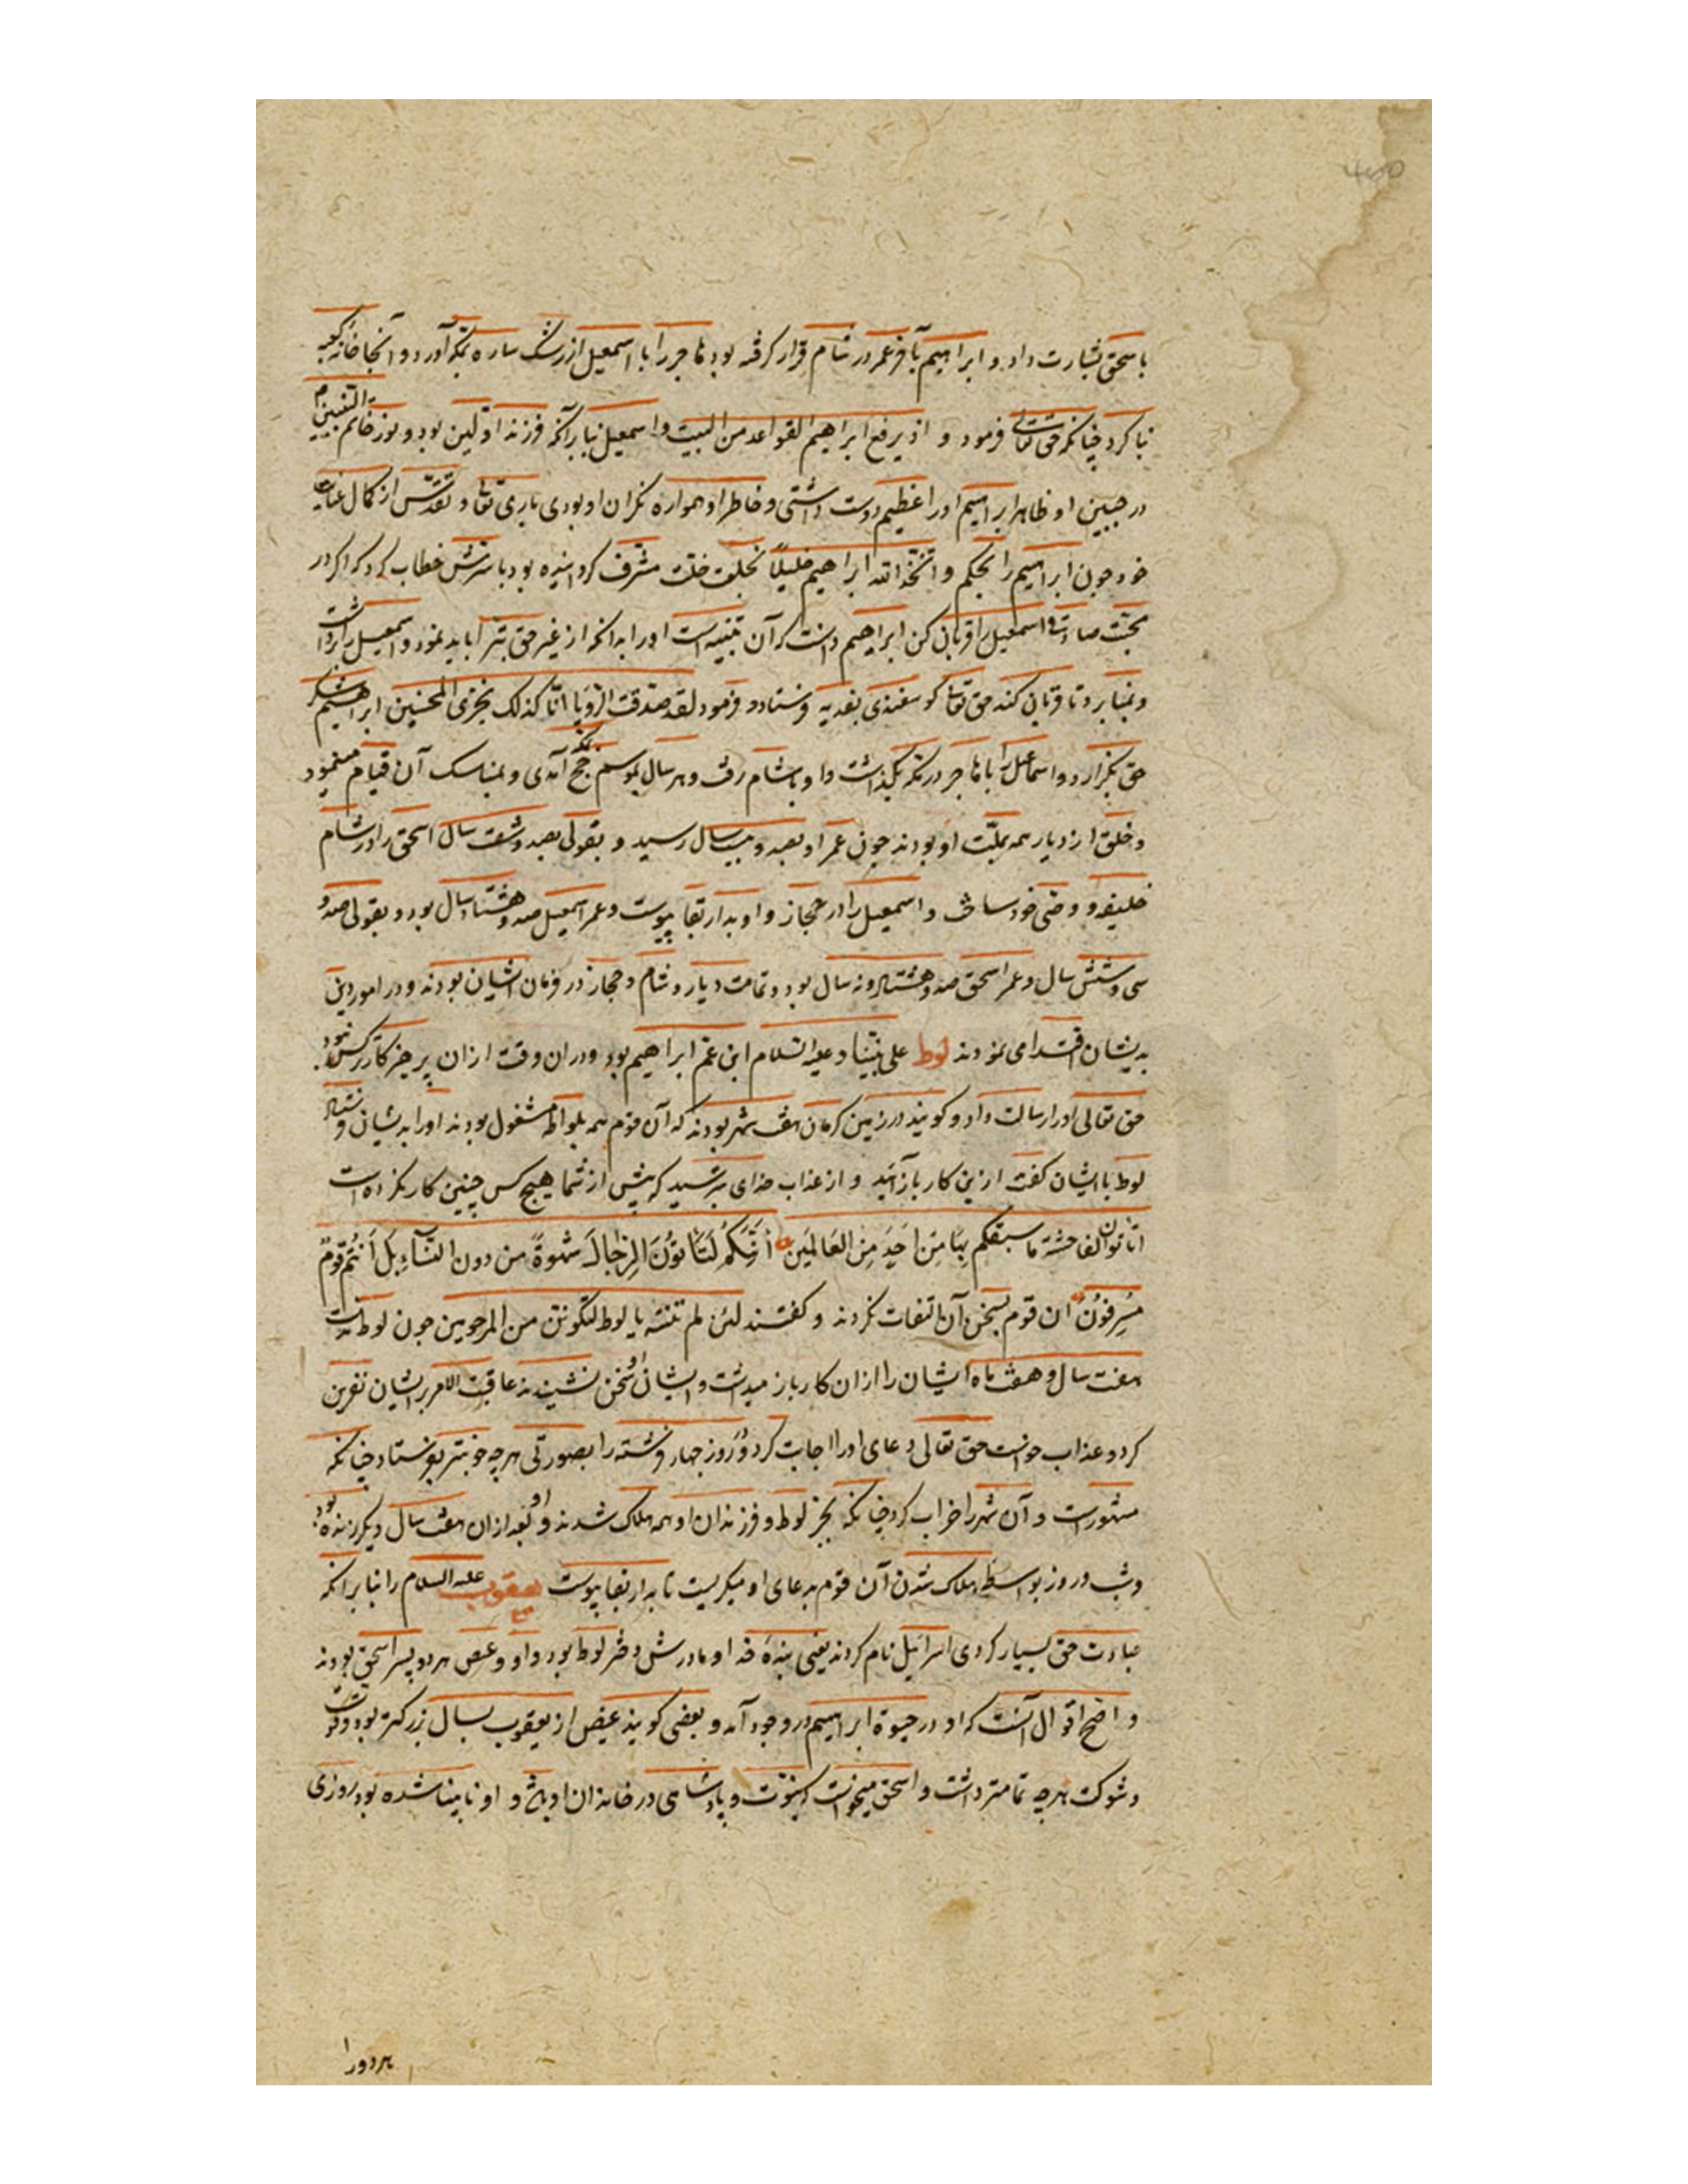 باسحق بشارت داد و ابراهیم تا آخر عمر در شام قرار گرفته بود هاجر را با اسمعیل از رشک ساره بمکه آورد و آنجا خانه کعبه
بنا کرد چنانکه حق تعالی فرمود و اذ یرفع ابراهیم القواعد من البیت و اسمعیل بنا برآنکه فرزند اولین بود و نور خاتم النبیین
در جبین او ظاهر ابراهیم او را عظیم دوست داشتی و خاطر او همواره نگران او بودی باری تعالی و تقدس از کمال عنایت
خود چون ابراهیم را بحکم و اتخذ الله ابراهیم خلیلا بخلعت خلت مشرف گردانیده بود با سرش خطاب کرد که اگر در
محبت صادقی اسمعیل را قربان کن ابراهیم دانست که آن تنبیه است او را بدانکه از غیر حق تبرا باید نمود و اسمعیل را برداشت
و بمنا برد تا قربان کند حق تعالی گوسفندی بفدیه فرستاد و فرمود لقد صدقت الرؤیا انا کذلک نجزی المحسنین ابراهیم شکر
حق بگزارد و اسماعیل را با هاجر در مکه بگذاشت و او با شام رفت و هر سال بموسم حج بمکه آمدی و بمناسک آن قیام مینمود
و خلق از دیار همه بملت او بودند چون عمر او بصد و بیست سال رسید و بقولی بصد و شصت سال اسحق را در شام
خلیفه و وصی خود ساخت و اسمعیل را در حجاز و او بدار بقا پیوست و عمر اسمعیل صد و هشتاد سال بود و بقولی صد و
سی و شش سال و عمر اسحق صد و هشتاد و نه سال بود و تمامت دیار و شام و حجاز در فرمان ایشان بودند و در امور دین
بدیشان اقتدا می نمودند لوط علی نبینا و علیه السلام ابن عم ابراهیم بود و در آن وقت از آن پرهیزکارتر کس نبود
حق تعالی او را رسالت داد و گویند در زمین کرمان هفت شهر بودند که آن قوم همه بلواطه مشغول بودند او را بدیشان فرستاد
لوط با ایشان گفت ازین کار باز آیید و از عذاب خدای بترسید که پیش از شما هیچ کس چنین کار نکرده است
اتاتون الفاحشة ما سبقکم بها من احد من العالمین أئنکم لتأتون الرجال شهوة من دون النساء بل انتم قوم
مسرفون ان قوم بسخن آن التفات نکردند و گفتند لئن لم تنته یا لوط لتکونن من المرجومین چون لوط
هفت سال و هفت ماه ایشان را از آن کار باز میداشت و ایشان سخن او نشنیدند عاقبت الامر بر ایشان نفرین
کرد و عذاب خواست حق تعالی دعای او را اجابت کرد و روز چهار فرشته را بصورتی هرچه خوبتر بفرستاد چنانکه
مشهورست و آن شهر را خراب کرد چنانکه بجز لوط و فرزندان او همه هلاک شدند و او بعد از آن هفت سال دیگر زنده بود
و شب و روز بواسطه هلاک شدن آن قوم بدعای او میگریست تا بدار بقا پیوست یعقوب علیه السلام را بنا برآنکه
عبادت حق بسیار کردی اسرائیل نام کردند یعنی بنده خدا و مادرش دختر لوط بود و او و عیص هر دو پسر اسحق بودند
و اصح اقوال آنست که او در حیوة ابراهیم در وجود آمد و بعضی گویند عیص از یعقوب بسال بزرگتر بود و قوت
و شوکت هرچه تمامتر داشت و اسحق میخواست که نبوت و پادشاهی در خاندان او باشد و او نابینا شده بود روزی
هر دو را